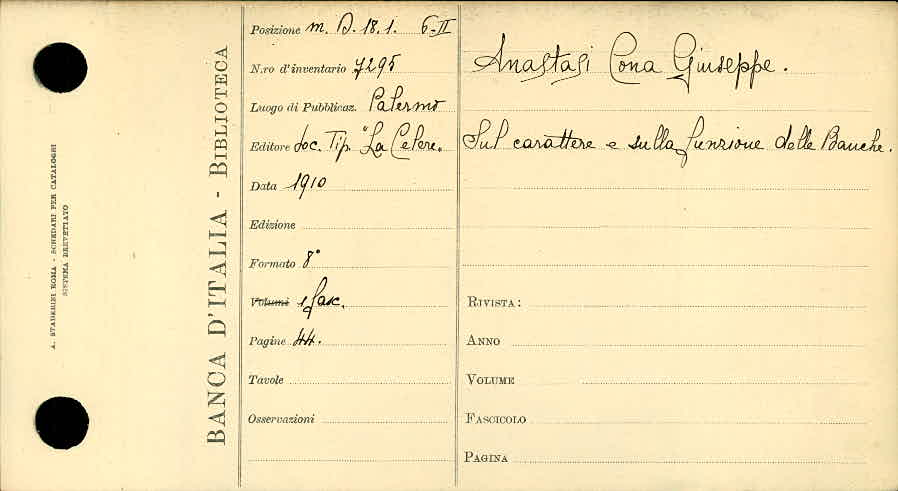 A. STADERINI ROMA - SCHEDARI PER CATALOGHI
SISTEMA BREVETTATO
BANCA D'ITALIA - BIBLIOTECA
Posizione m. D. 18.1. 6-II
N.ro d'inventario 7295
Luogo di Pubblicaz. Palermo
Editore Soc. Tip. "La Celere.
Data 1910
Edizione
Formato 8°
Volumi 1 fasc.
Pagine 44.
Tavole
Osservazioni
Anastasi Cona Giuseppe.
Sul carattere e sulla funzione delle Banche.
RIVISTA:
ANNO
VOLUME
FASCICOLO
PAGINA